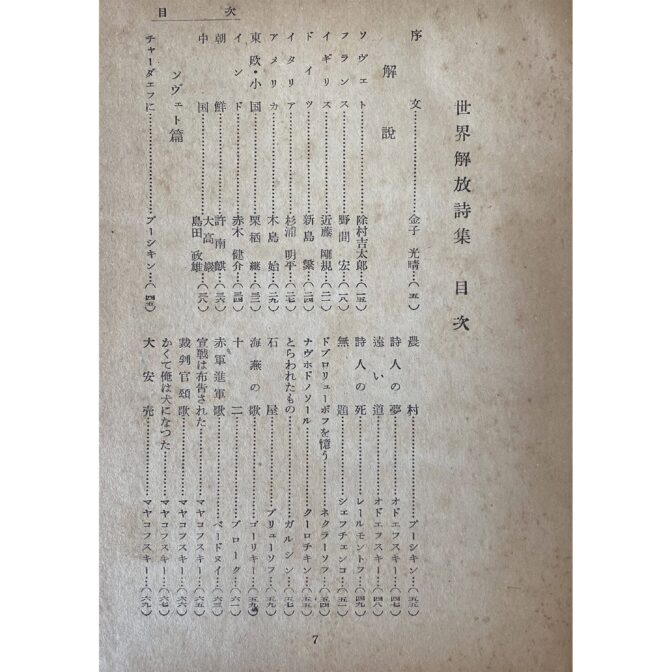 目 次
世界解放詩集 目次
序 文……金子 光晴…(五)
解 説
ソヴェト……除村吉太郎…(一五)
フランス……野間 宏…(一八)
イギリス……近藤 剛規…(二一)
ドイツ……新島 繁…(二四)
イタリア……杉浦 明平…(二七)
アメリカ……木島 始…(二九)
東欧・小国……栗栖 継…(三二)
インド……赤木 健介…(三四)
朝 鮮……許 南麒…(三六)
中 国……大高 巌
島田 政雄…(三八)
ソヴェト篇
チャーダエフに……プーシキン…(四五)
農 村……プーシキン…
詩人の夢……オドエフスキー…(四七)
遠い道……オドエフスキー…(四八)
詩人の死……レールモントフ…(四九)
無 題……シェフチェンコ…(五一)
ドブロリューボフを憶う……ネクラーソフ…(五四)
ナヴホドノソール……クーロチキン…(五五)
とらわれたもの……ガルシン…(五七)
石 屋……ブリューソフ…(五八)
海燕の歌……ゴーリキー…(五九)
十 二……ブローク…(六一)
赤軍進軍歌……ベードヌイ…(六三)
宣戦は布告された……マヤコフスキー…(六五)
裁判官頌歌……マヤコフスキー…(六六)
かくて俺は犬になつた……マヤコフスキー…(六七)
大 安 売……マヤコフスキー…(六九)
7